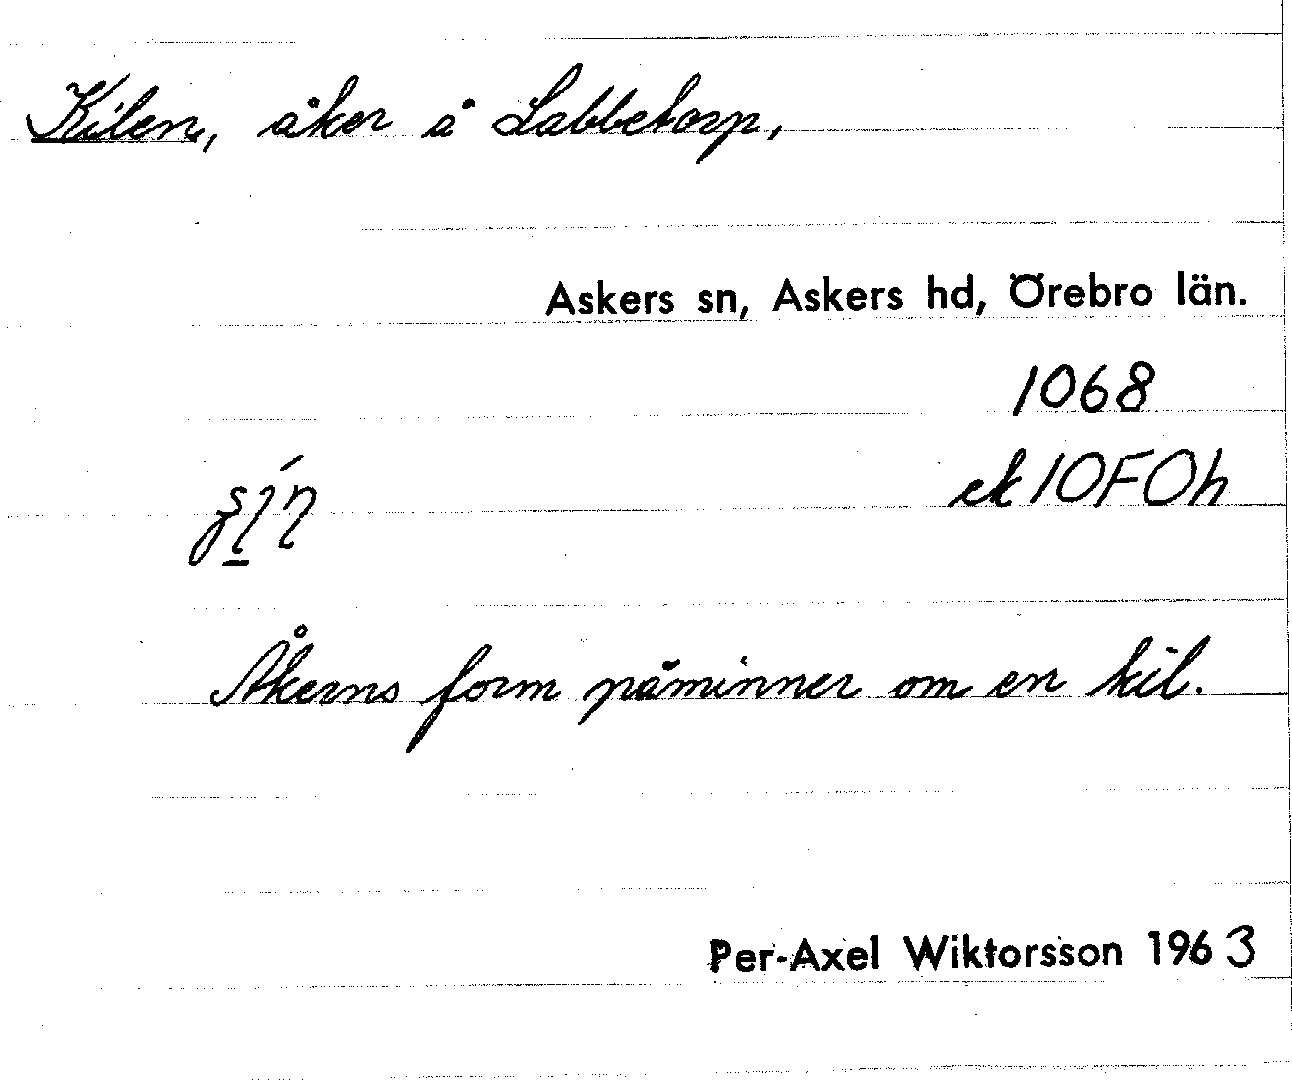 Kilen, åker å Labbetorp,
Askers sn, Askers hd, Örebro län.
1068
ek 10F0h
Åkerns form påminner om en kil.
Per-Axel Wiktorsson 1963